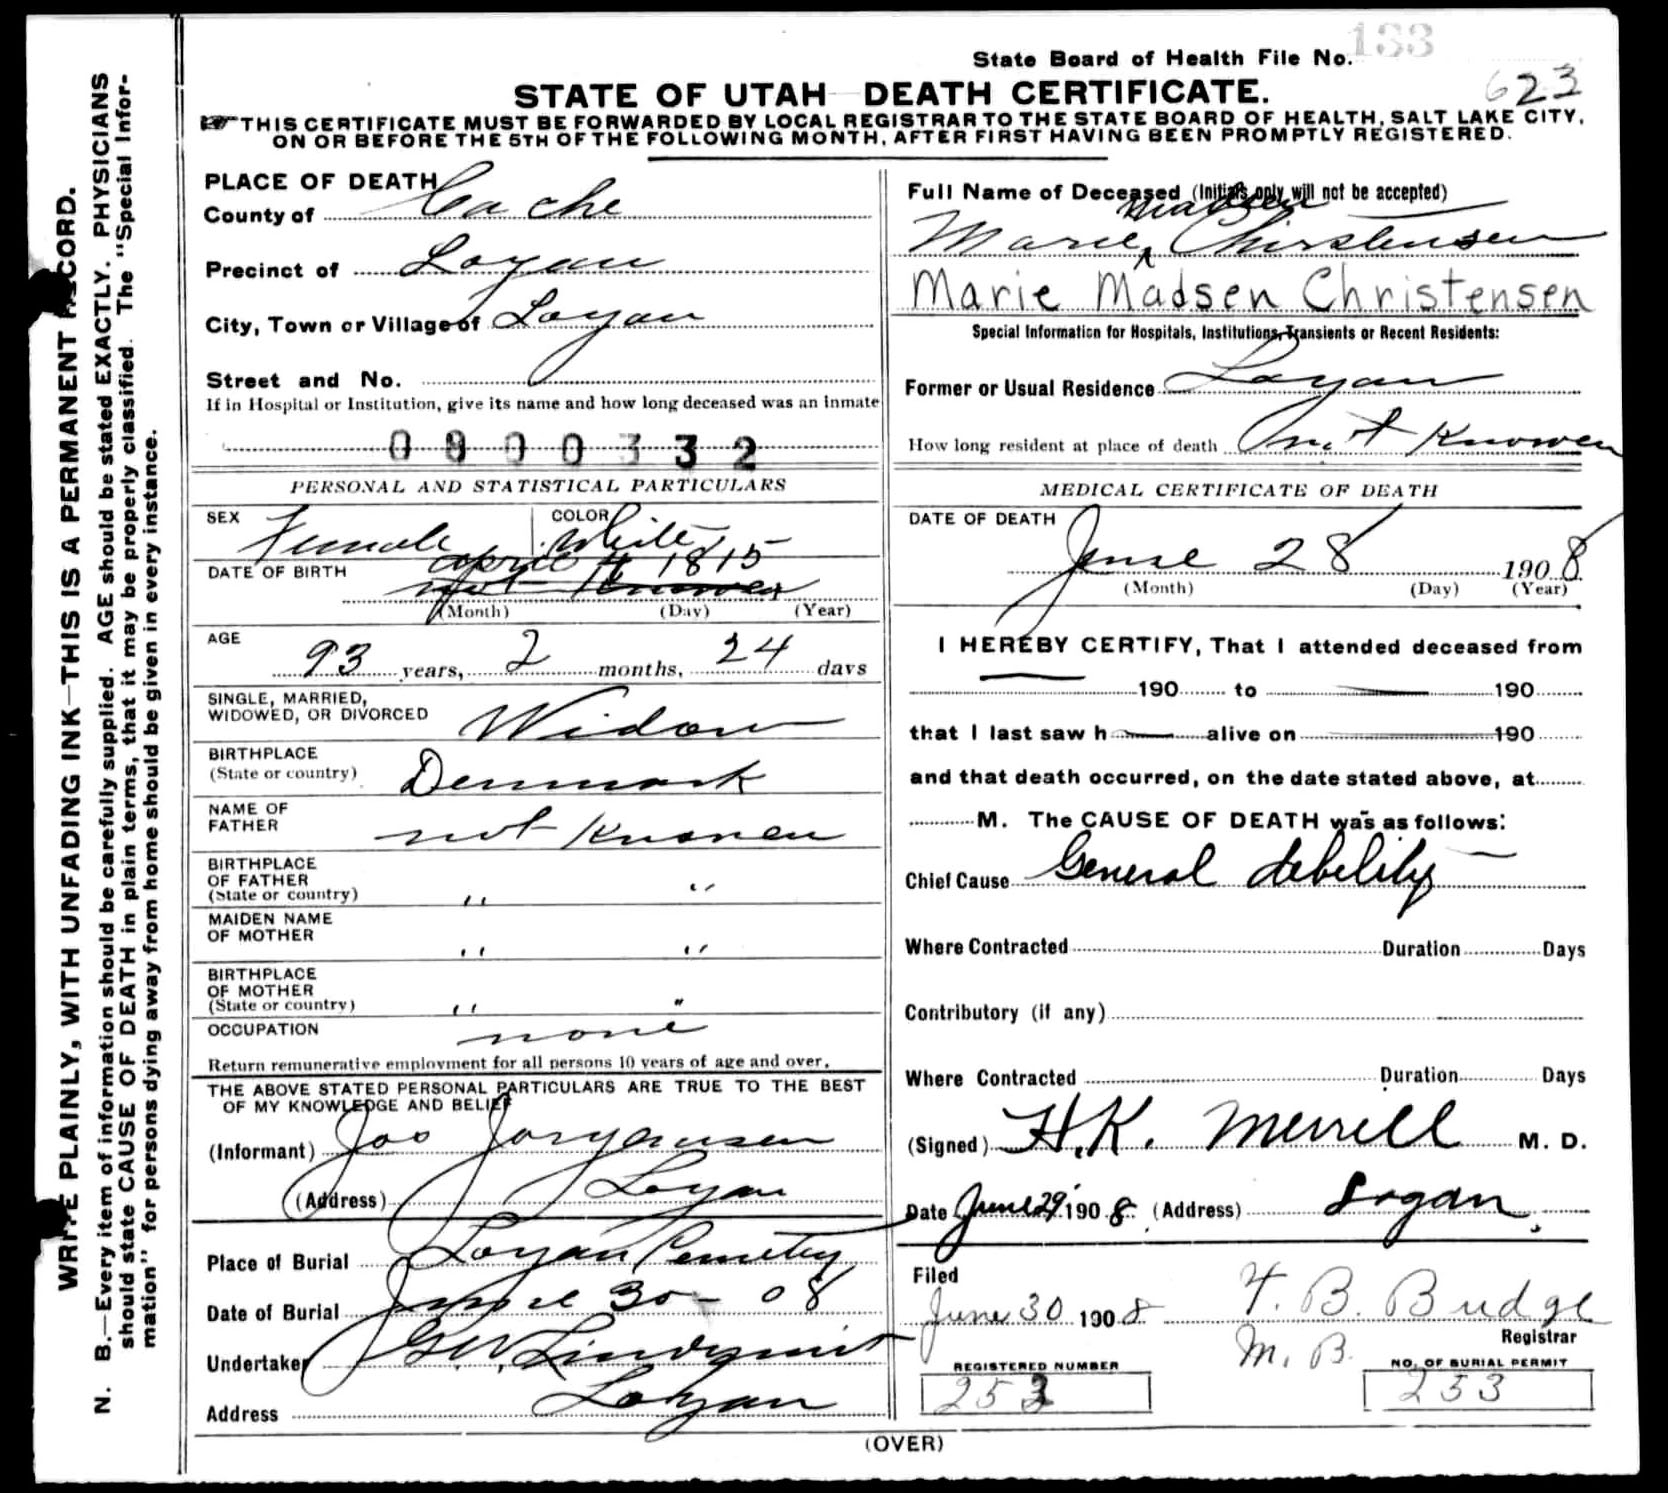 WRITE PLAINLY, WITH UNFADING INK—THIS IS A PERMANENT RECORD.
N. B.—Every item of information should be carefully supplied. AGE should be stated EXACTLY. PHYSICIANS
should state CAUSE OF DEATH in plain terms, that it may be properly classified. The "Special Infor-
mation" for persons dying away from home should be given in every instance.
State Board of Health File No. 133
623
STATE OF UTAH—DEATH CERTIFICATE.
THIS CERTIFICATE MUST BE FORWARDED BY LOCAL REGISTRAR TO THE STATE BOARD OF HEALTH, SALT LAKE CITY,
ON OR BEFORE THE 5TH OF THE FOLLOWING MONTH, AFTER FIRST HAVING BEEN PROMPTLY REGISTERED.
PLACE OF DEATH
County of Cache
Precinct of Logan
City, Town or Village of Logan
Street and No.
If in Hospital or Institution, give its name and how long deceased was an inmate
0 0 0 0 3 3 2
PERSONAL AND STATISTICAL PARTICULARS
SEX Female COLOR White
DATE OF BIRTH april 4 1815
not Knowen
(Month) (Day) (Year)
AGE
93 years, 2 months, 24 days
SINGLE, MARRIED,
WIDOWED, OR DIVORCED Widow
BIRTHPLACE
(State or country) Denmark
NAME OF
FATHER not Knowen
BIRTHPLACE
OF FATHER
(State or country) " "
MAIDEN NAME
OF MOTHER " "
BIRTHPLACE
OF MOTHER
(State or country) " "
OCCUPATION none
Return remunerative employment for all persons 10 years of age and over.
THE ABOVE STATED PERSONAL PARTICULARS ARE TRUE TO THE BEST
OF MY KNOWLEDGE AND BELIEF
(Informant) Jas Jorgensen
(Address) Logan
Place of Burial Logan Cemetery
Date of Burial June 30 - 08
Undertaker G.W. Lindquist
Address Logan
Full Name of Deceased (Initials only will not be accepted)
Madsen
Marie Christensen
Marie Madsen Christensen
Special Information for Hospitals, Institutions, Transients or Recent Residents:
Former or Usual Residence Logan
How long resident at place of death not Knowen
MEDICAL CERTIFICATE OF DEATH
DATE OF DEATH
June 28 1908
(Month) (Day) (Year)
I HEREBY CERTIFY, That I attended deceased from
190 to 190
that I last saw h alive on 190
and that death occurred, on the date stated above, at
M. The CAUSE OF DEATH was as follows:
Chief Cause General debility
Where Contracted Duration Days
Contributory (if any)
Where Contracted Duration Days
(Signed) H.K. Merrill M. D.
Date June 29 1908. (Address) Logan.
Filed
June 30 1908 F. B. Budge
Registrar
M. B.
REGISTERED NUMBER
253
NO. OF BURIAL PERMIT
253
(OVER)